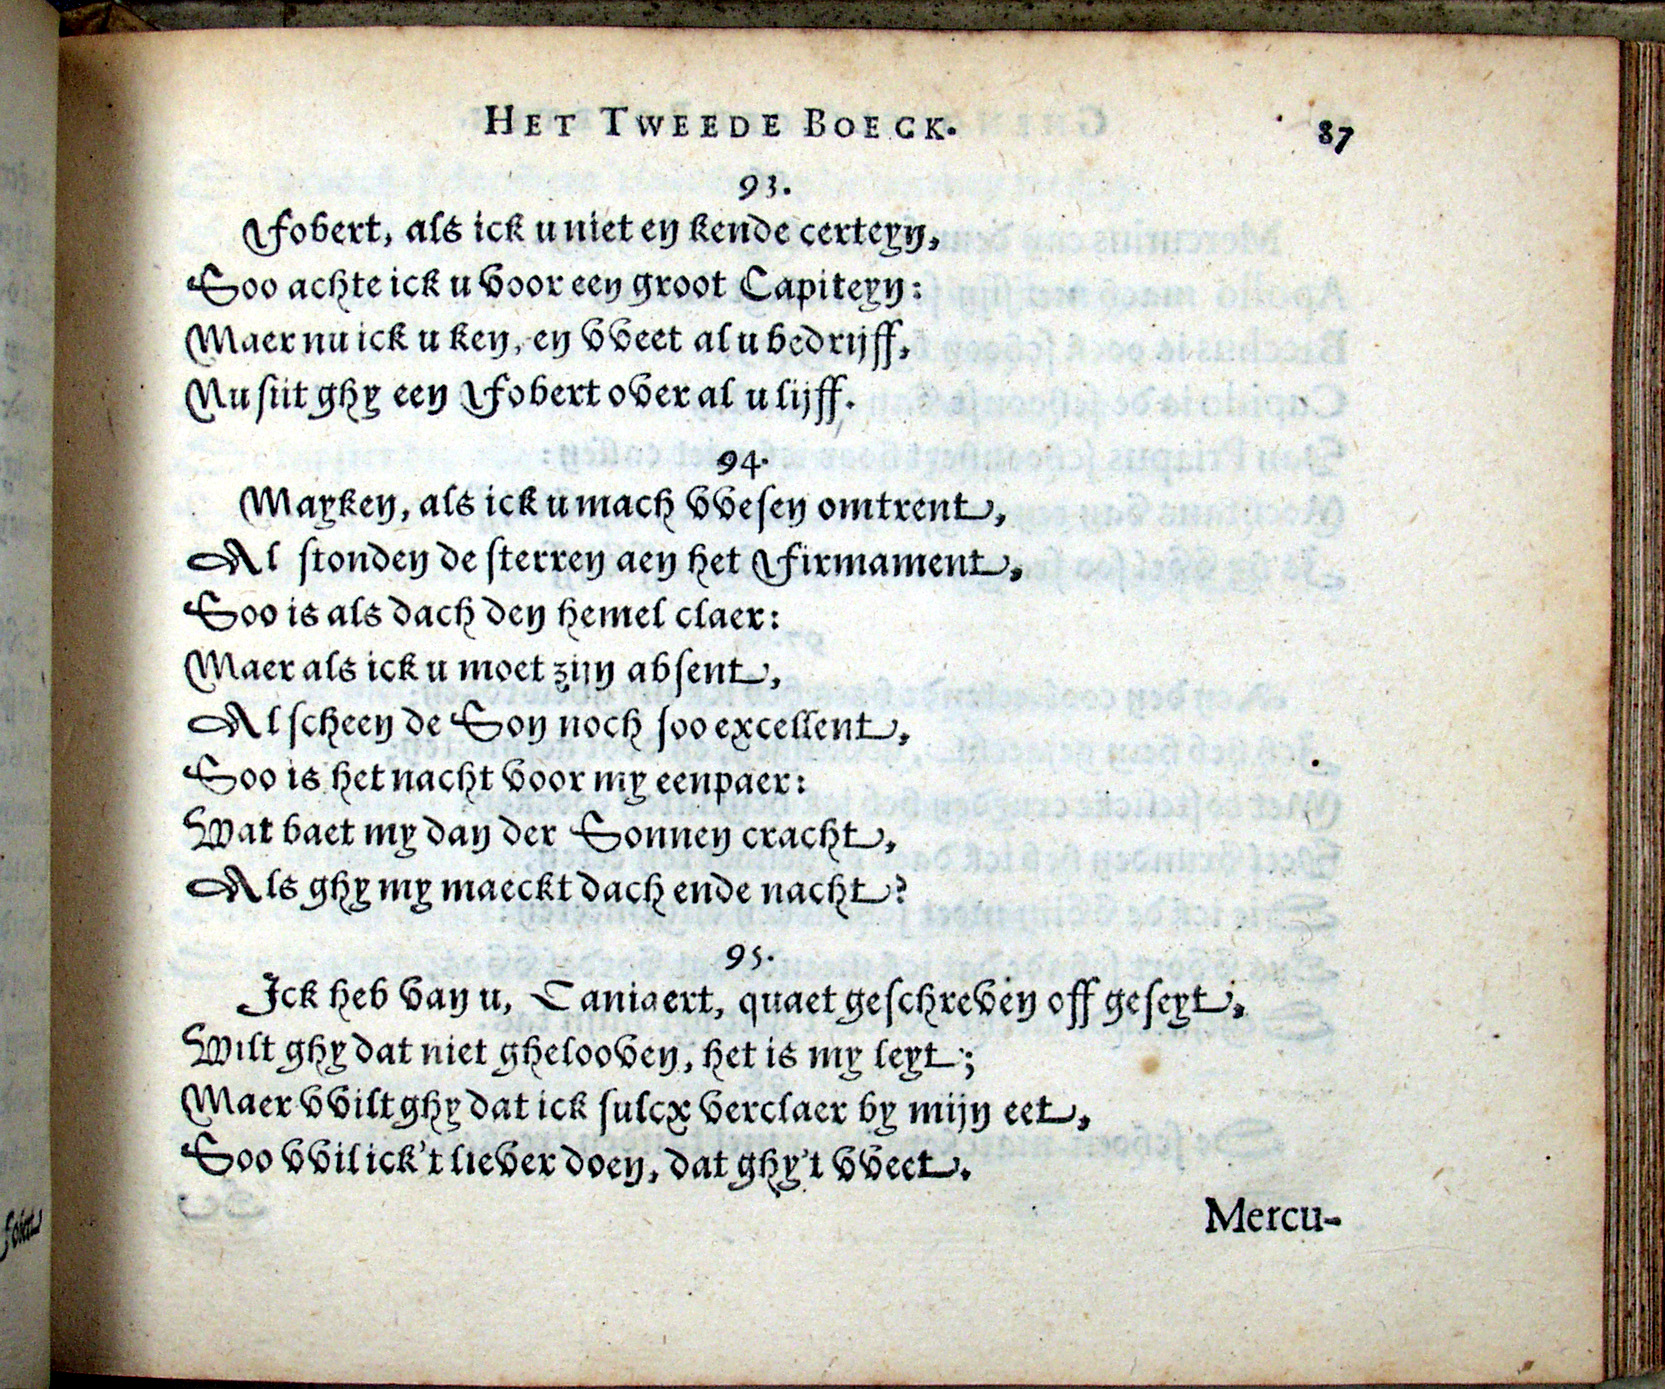 HET TWEEDE BOECK. 87
93.
Fobert, als ick u niet en kende certeyn,
Soo achte ick u voor een groot Capiteyn:
Maer nu ick u ken, en vveet al u bedrijff,
Nu siit ghy een Fobert over al u lijff.
94.
Mayken, als ick u mach vvesen omtrent,
Al stonden de sterren aen het Firmament,
Soo is als dach den hemel claer:
Maer als ick u moet zijn absent,
Al scheen de Son noch soo excellent,
Soo is het nacht voor my eenpaer:
Wat baet my dan der Sonnen cracht,
Als ghy my maeckt dach ende nacht?
95.
Ick heb van u, Taniaert, quaet geschreven off geseyt,
Wilt ghy dat niet ghelooven, het is my leyt;
Maer vvilt ghy dat ick sulcx verclaer by mijn eet,
Soo vvil ick't liever doen, dat ghy't vveet.
Mercu-